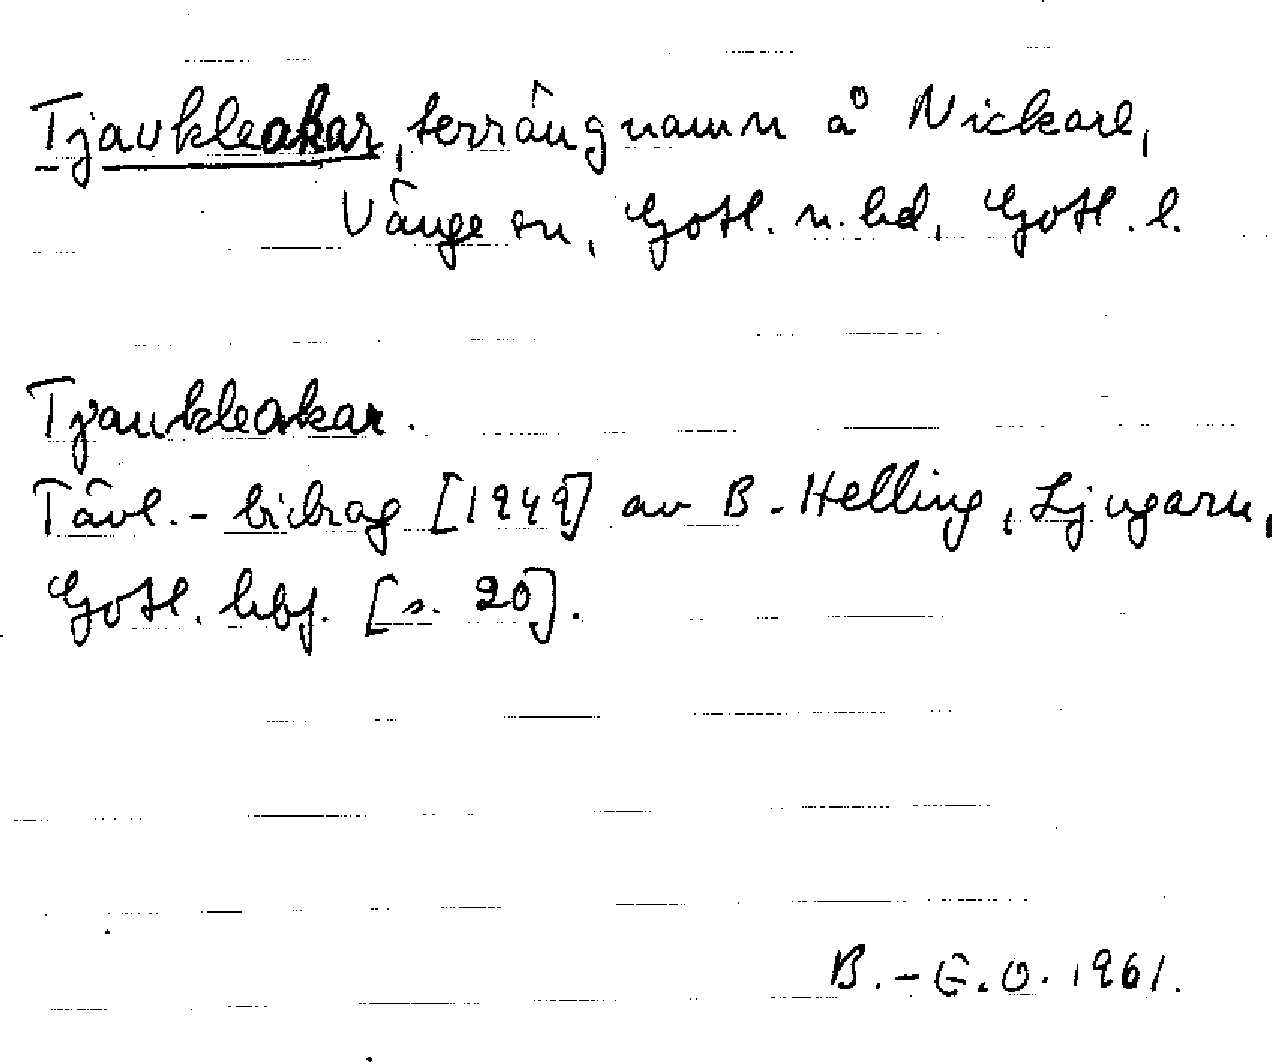 Tjaukleakar, terrängnamn å Nickarl,
Vänge sn, Gotl. n. hd, Gotl. l.
Tjaukleakar.
Tävl.-bidrag [1949] av B. Helling, Ljugarn,
Gotl. hbf. [s. 20].
B.-E.O. 1961.